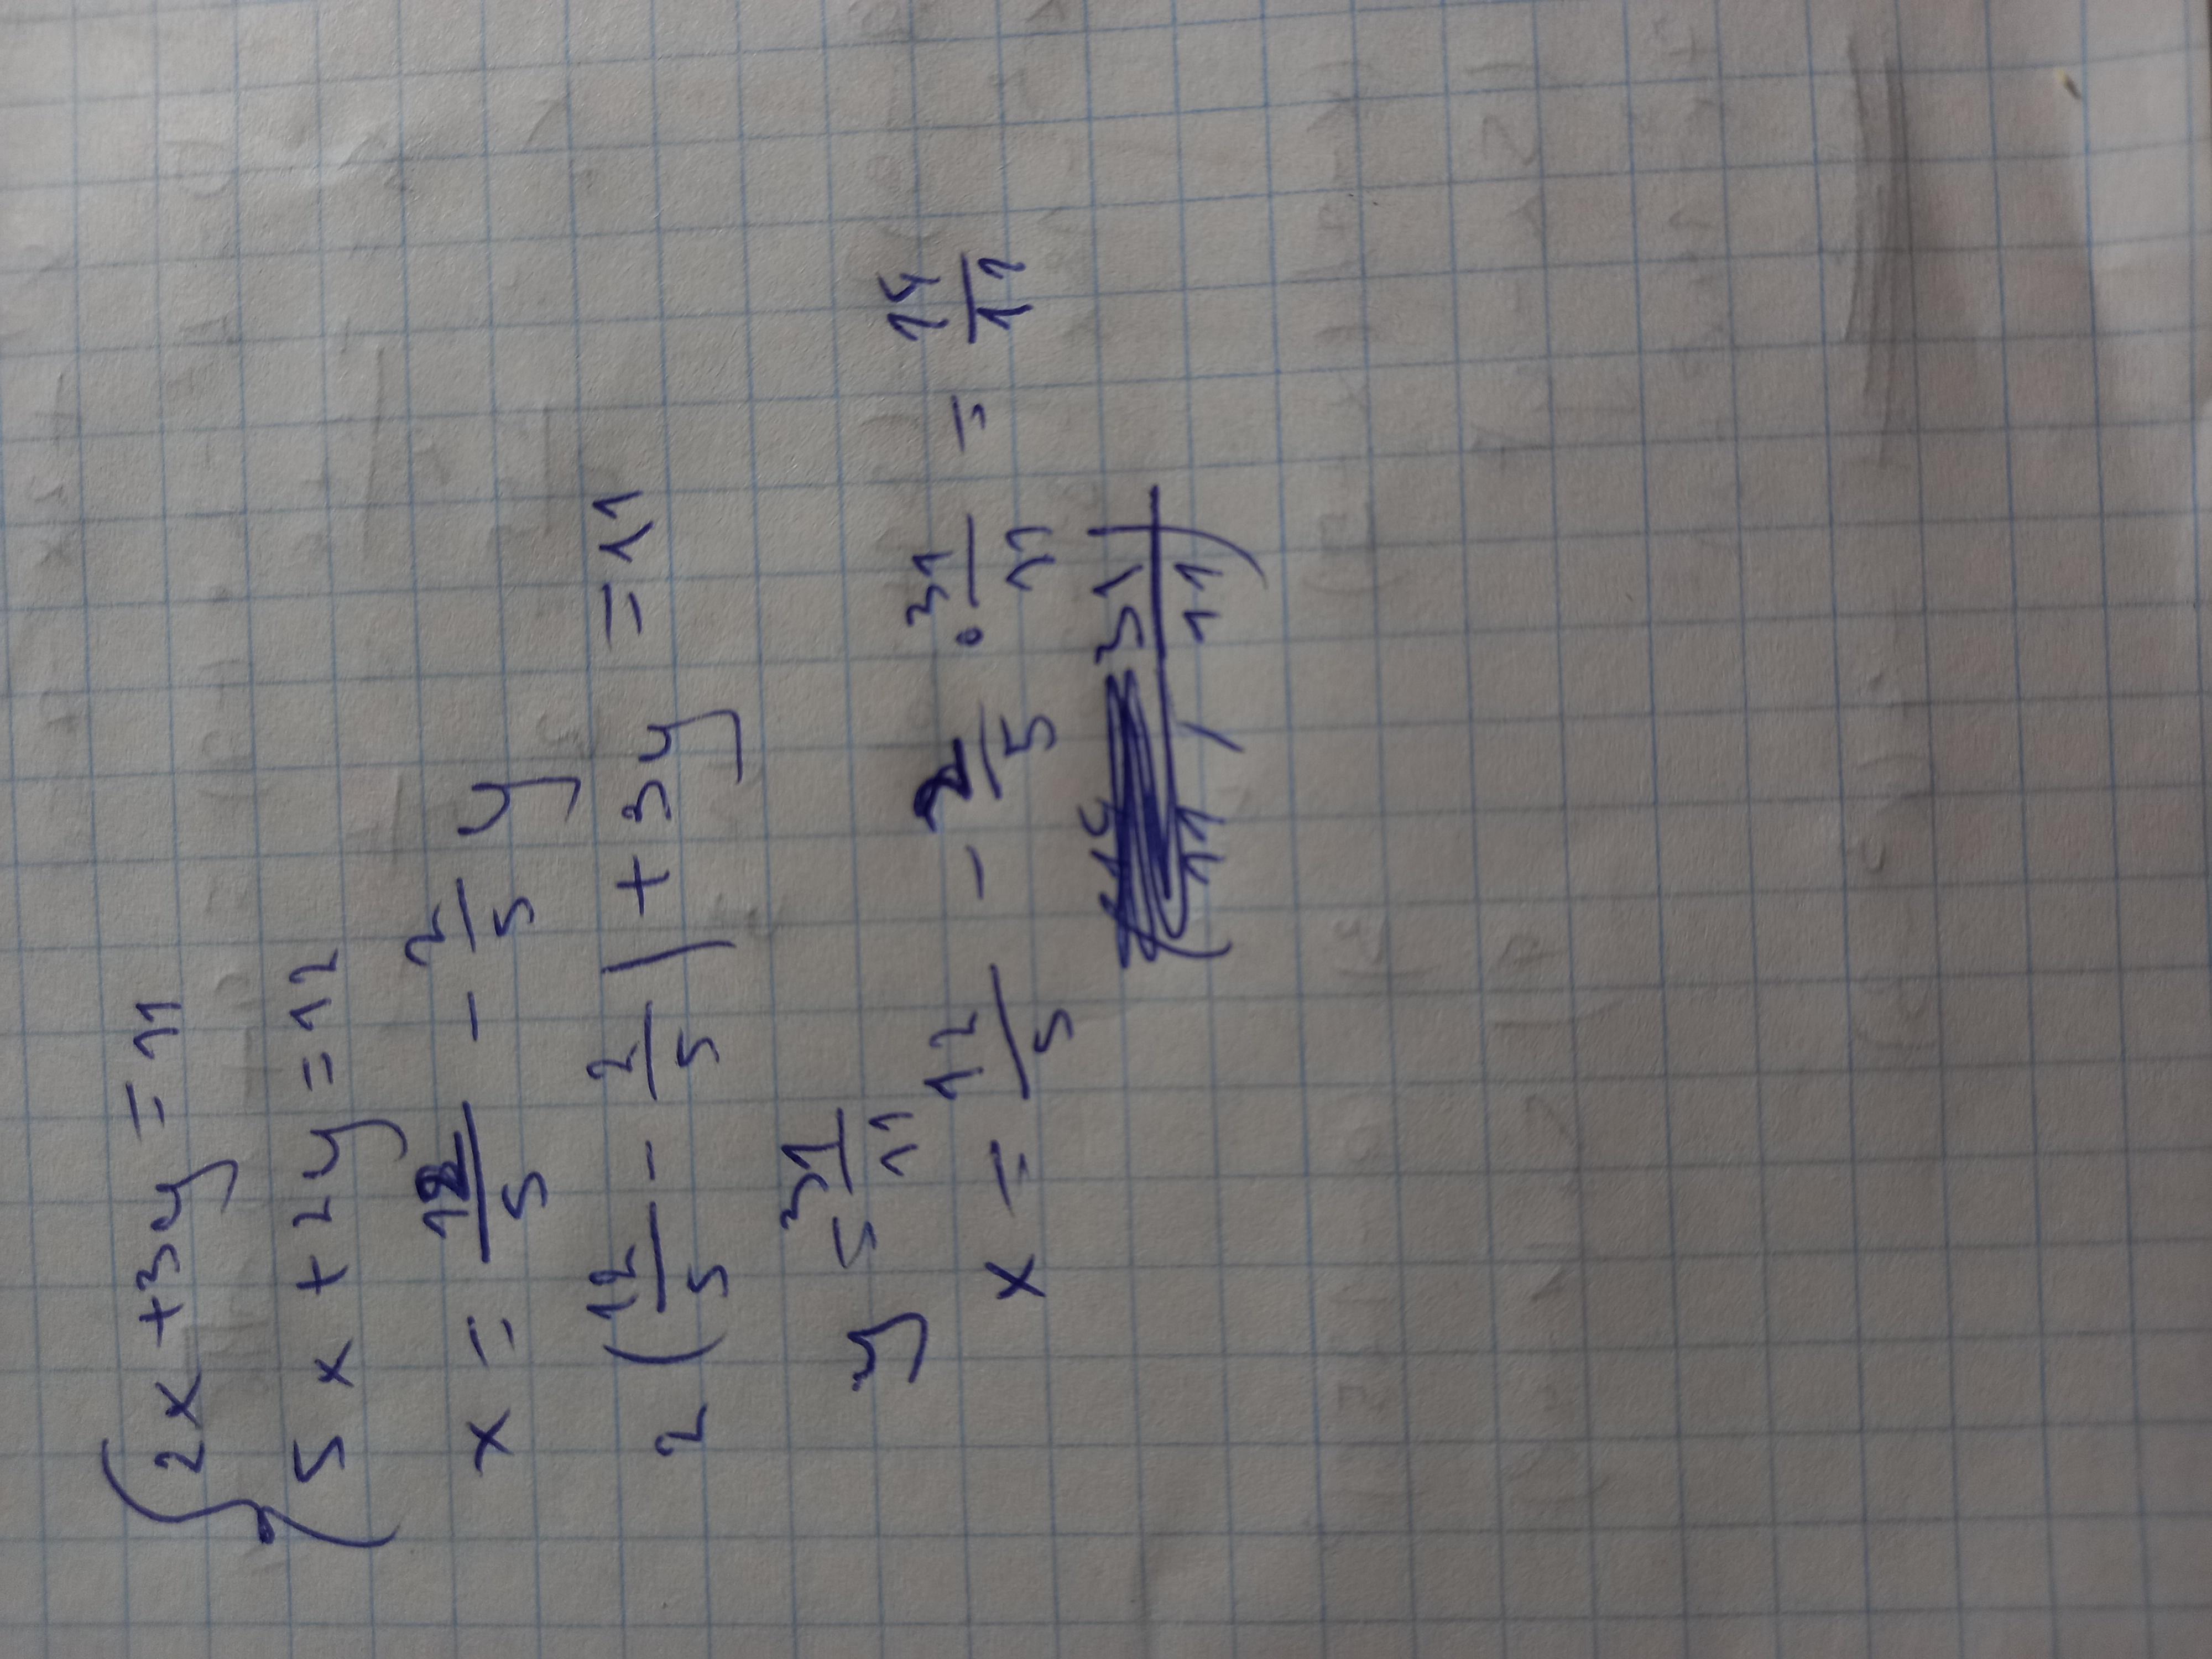 {2x+3y=11
5x+2y=12
x = 12/5 - 2/5 y
2(12/5 - 2/5) + 3y = 11
y = 31/11
x = 12/5 - 2/5 · 31/11 = 14/11
(14/11, 31/11)